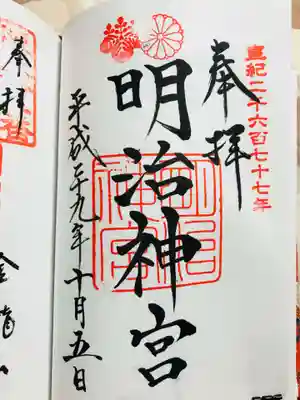 皇紀二千六百七十七年
奉拝
明治神宮
明治神宮
平成二十九年十月五日
奉拝
金龍山